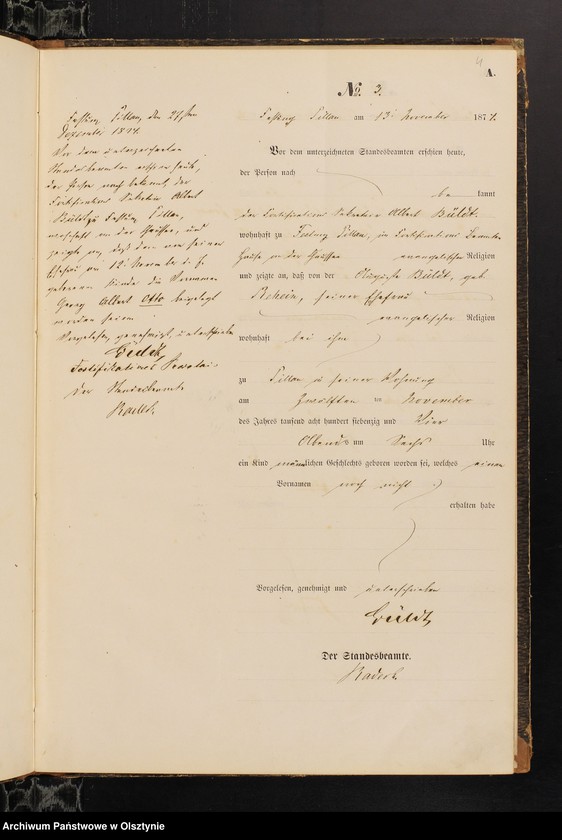 4
A.
No 3.
Festung Pillau am 13 November 1874.
Vor dem unterzeichneten Standesbeamten erschien heute,
der Person nach
be kannt
der Fortifications Sekretair Albert Büldt
wohnhaft zu Festung Pillau, Fortifications Beamten
evangelischer Religion
und zeigte an, daß von der Büldt, geb.
seiner Ehefrau
evangelischer Religion
wohnhaft bei ihm
zu Pillau in seiner Wohnung
am zwölften ten November
des Jahres tausend acht hundert siebenzig und vier
Abends um sechs Uhr
ein Kind männlichen Geschlechts geboren worden sei, welches einen
Vornamen noch nicht
erhalten habe
Vorgelesen, genehmigt und unterschrieben
Büldt
Der Standesbeamte.
Festung Pillau, den 24ten
Dezember 1874.
Vor dem unterzeichneten
Standesbeamten erschien heute,
der Person nach bekannt, der
Fortifications Sekretair Albert
Büldt zu Festung Pillau,
und
zeigte an, daß dem von seiner
Ehefrau am 12 November d. J.
geborenen Kinde die Vornamen
Georg Albert Otto beigelegt
worden seien
Vorgelesen, genehmigt, unterschrieben
Büldt,
Der Standesbeamte
Archiwum Państwowe w Olsztynie